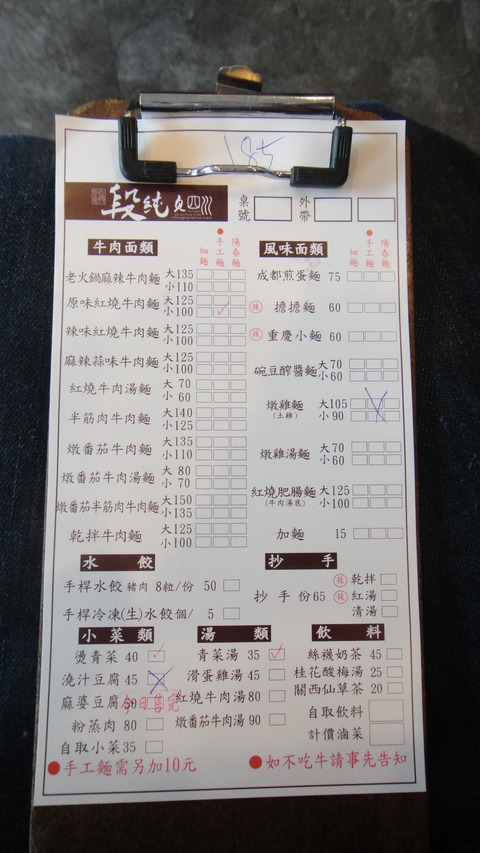 185
段純貞 四川
桌號
外帶
牛肉面類
細麵 手工麵 陽春麵
老火鍋麻辣牛肉麵 大135 小110
原味紅燒牛肉麵 大125 小100
辣味紅燒牛肉麵 大125 小100
麻辣蒜味牛肉麵 大125 小100
紅燒牛肉湯麵 大70 小60
半筋肉牛肉麵 大140 小125
燉番茄牛肉麵 大135 小110
燉番茄牛肉湯麵 大80 小70
燉番茄半筋肉牛肉麵 大150 小135
乾拌牛肉麵 大125 小100
風味面類
細麵 手工麵 陽春麵
成都煎蛋麵 75
辣 擔擔麵 60
辣 重慶小麵 60
碗豆醡醬麵 大70 小60
燉雞麵 (土雞) 大105 小90
燉雞湯麵 大70 小60
紅燒肥腸麵 (牛肉湯底) 大125 小100
加麵 15
水餃
手桿水餃 豬肉 8粒/份 50
手桿冷凍(生)水餃個/ 5
抄手
抄手 份65
辣 乾拌
辣 紅湯
清湯
小菜類
燙青菜 40
澆汁豆腐 45
麻婆豆腐 50
今日售完
粉蒸肉 80
自取小菜 35
湯類
青菜湯 35
滑蛋雞湯 45
紅燒牛肉湯 80
燉番茄牛肉湯 90
飲料
絲襪奶茶 45
桂花酸梅湯 25
關西仙草茶 20
自取飲料
計價滷菜
●手工麵需另加10元
●如不吃牛請事先告知